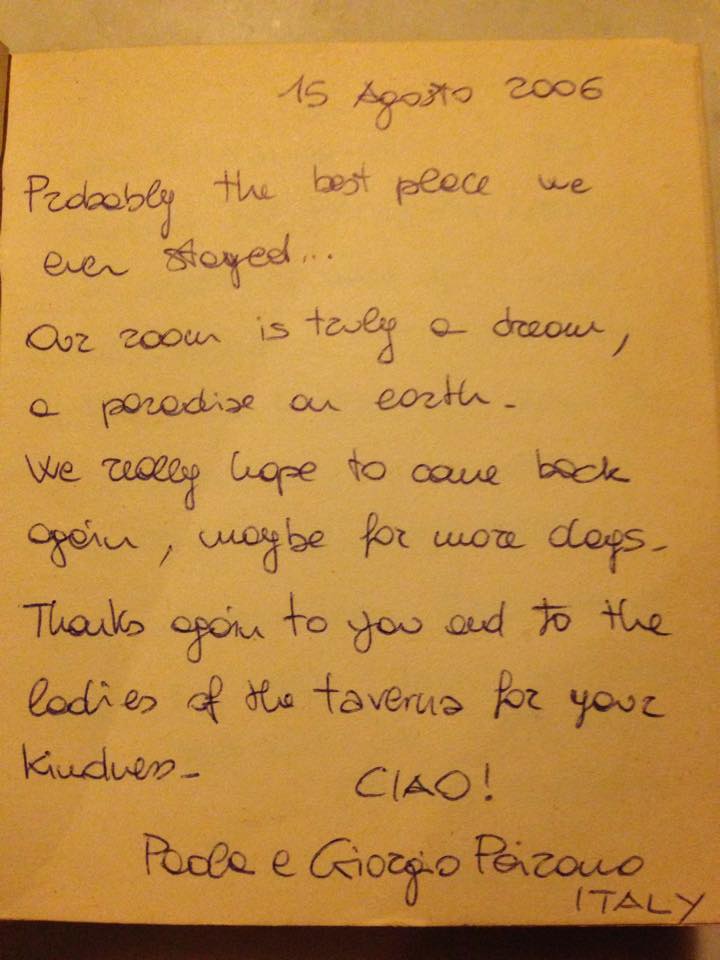 15 Agosto 2006
Probably the best place we
ever stayed...
Our room is truly a dream,
a paradise on earth-
We really hope to come back
again, maybe for more days-
Thanks again to you and to the
ladies of the taverna for your
kindness-
CIAO!
Paola e Giorgio Peirano
ITALY